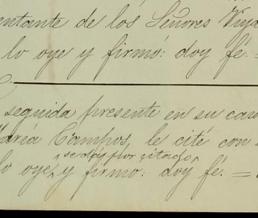 entante de los Señores Viya
lo oye y firmo: doy fé. =
seguida presente en su cas
Campos, le cité con
se dá por citado,
lo oye, y firmo: doy fé. =